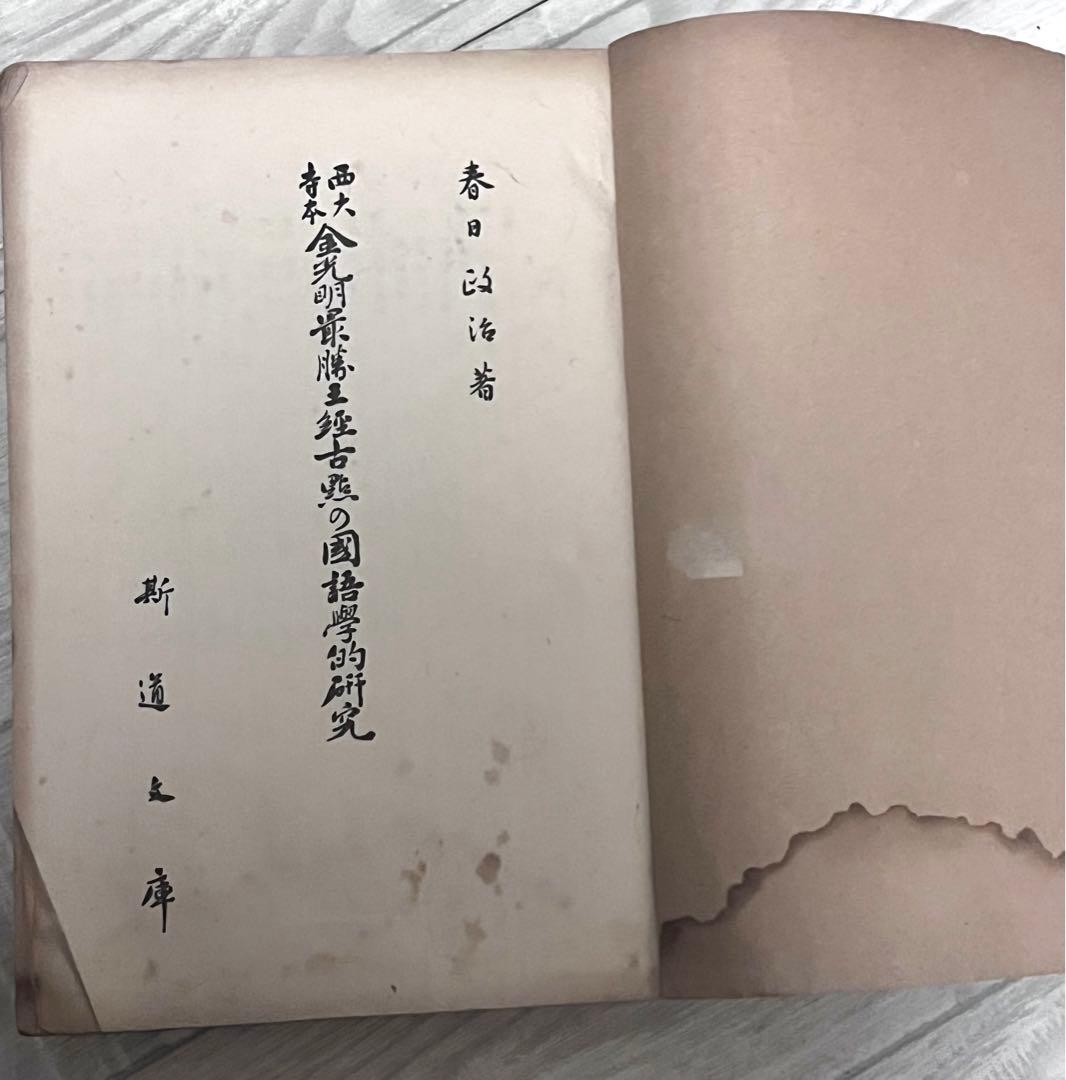 春日政治著
西大寺本金光明最勝王經古點の國語學的硏究
斯道文庫